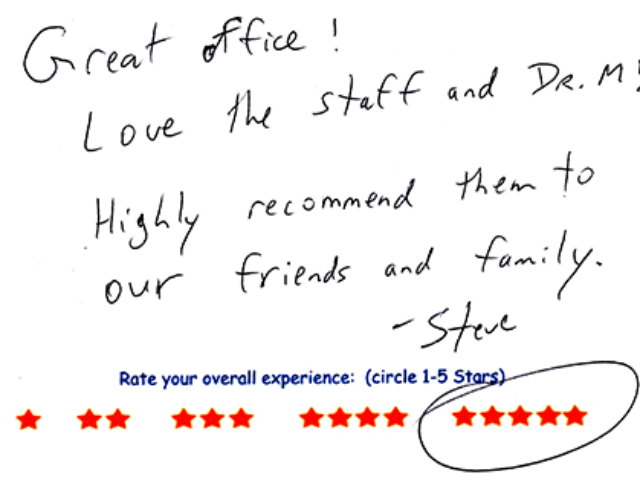 Great office!
Love the staff and Dr. M!
Highly recommend them to
our friends and family.
- Steve
Rate your overall experience: (circle 1-5 Stars)